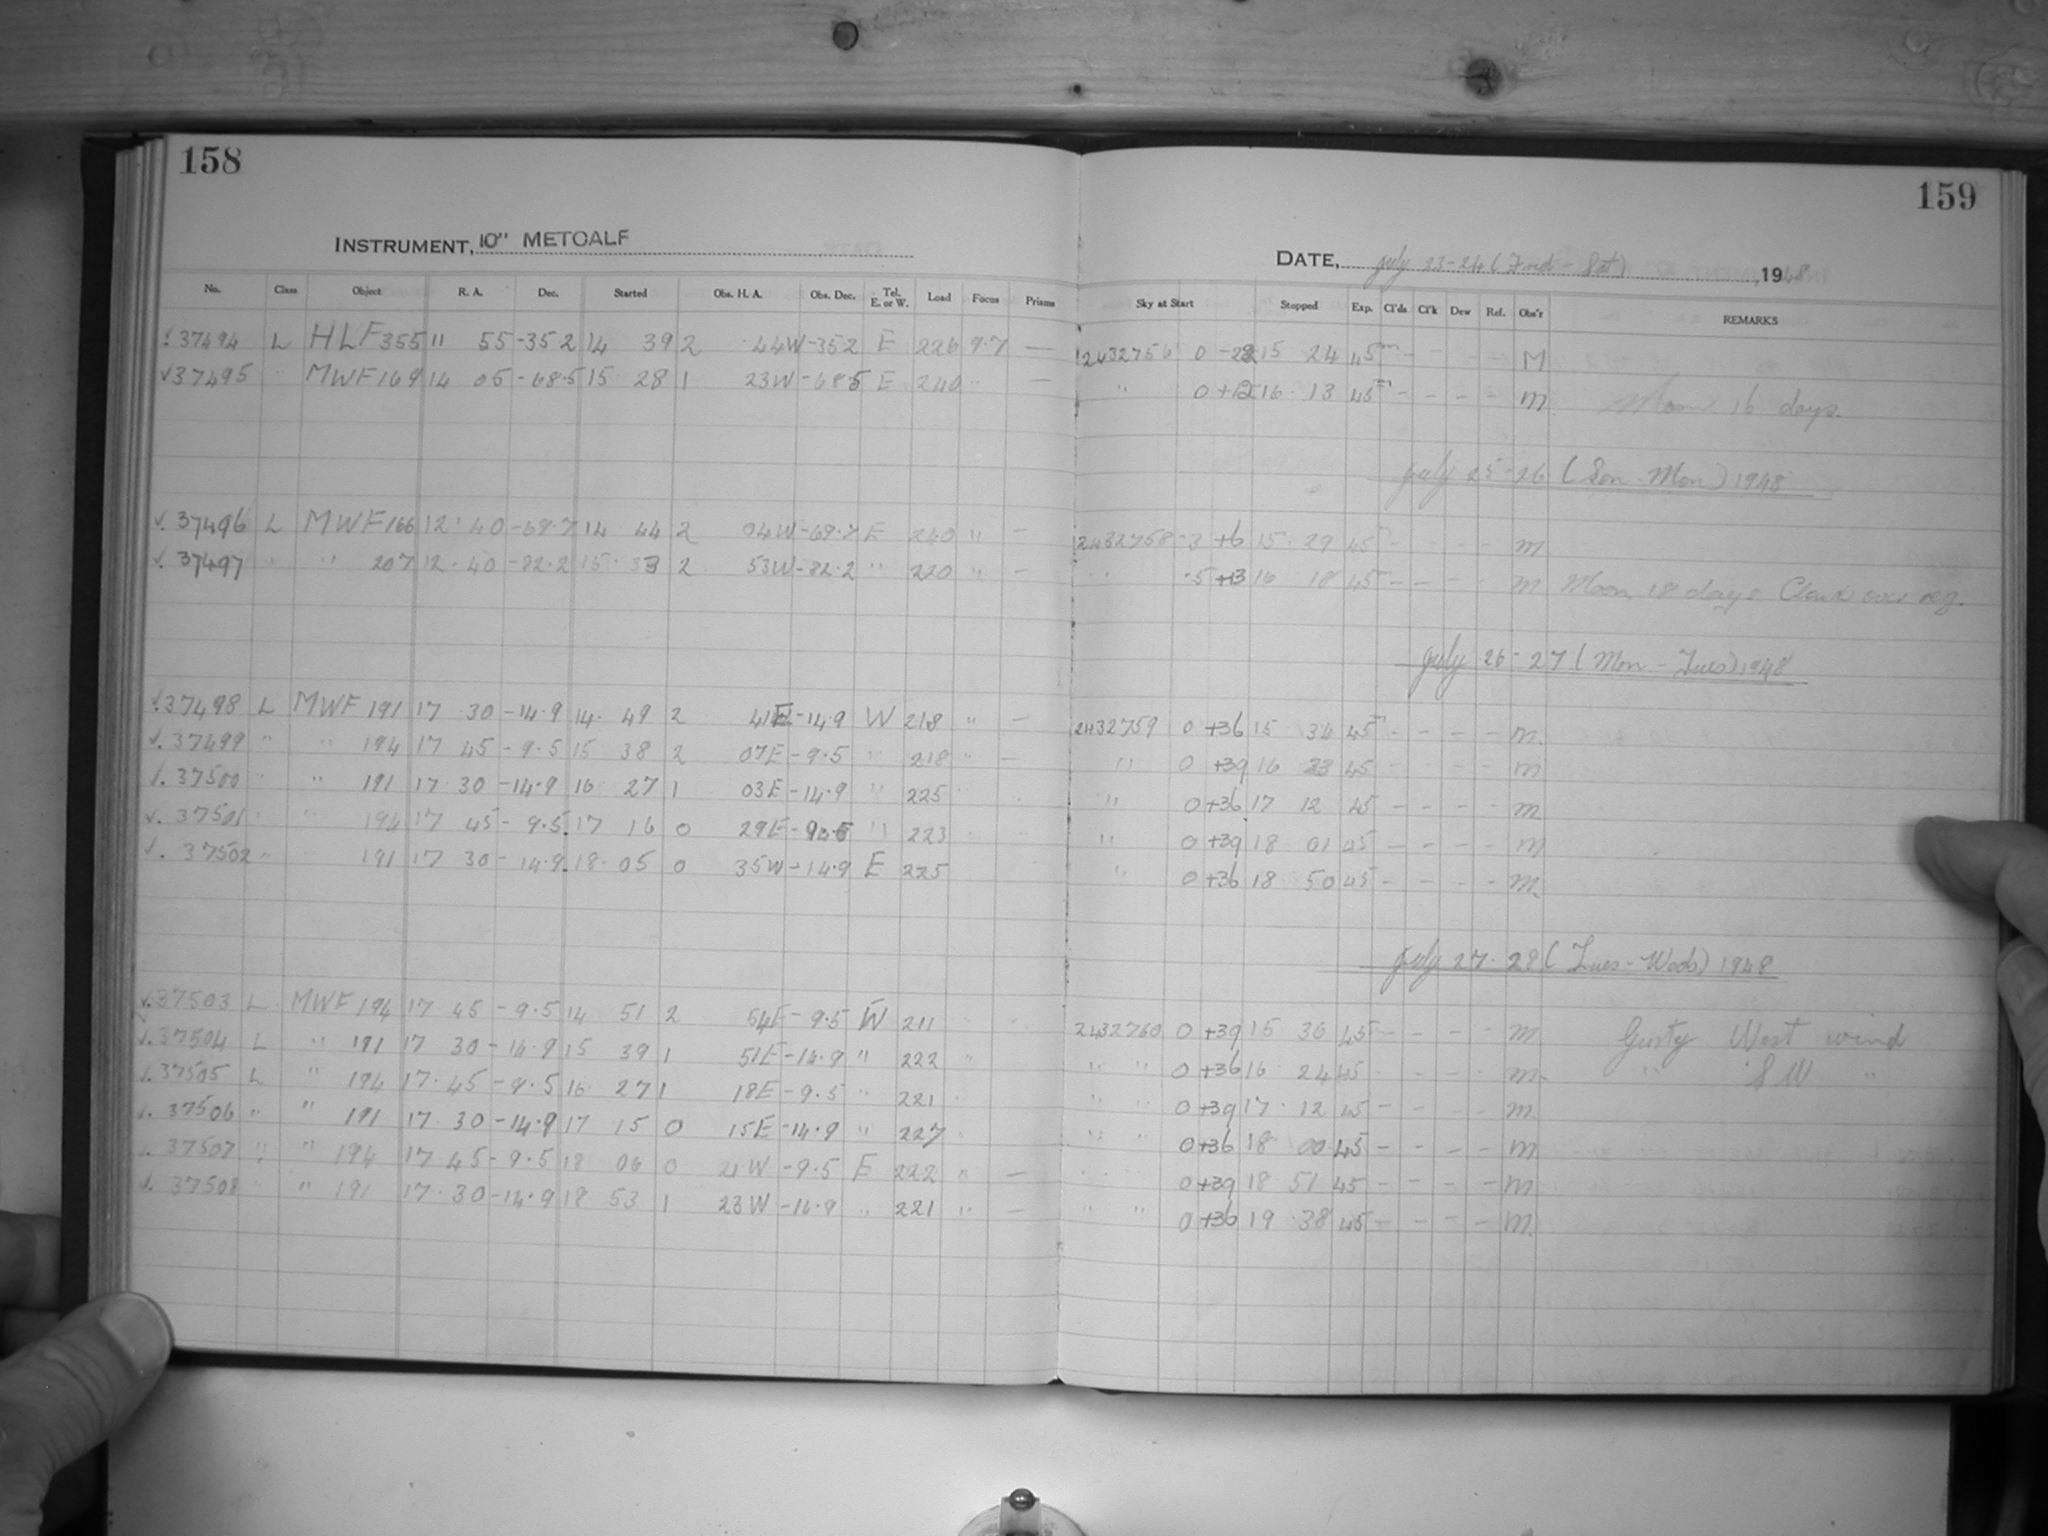 158
INSTRUMENT, 10" METCALF
No. Class Object R. A. Dec. Started Obs. H. A. Obs. Dec. Tel. E. or W. Load Focus Prisms
37494 L HLF 355 11 55 -35 2 14 39 2 44W -35 2 E 226 9.7 —
37495 " MWF 169 14 05 -68.5 15 28 1 23W -68 5 E 240 " —
37496 L MWF 166 12 40 -69.7 14 44 2 04W -69.7 E 240 " —
37497 " " 207 12 40 -82.2 15 33 2 53W -82.2 " 220 " —
37498 L MWF 191 17 30 -14.9 14 49 2 41E -14.9 W 218 " —
37499 " " 194 17 45 -9.5 15 38 2 07E -9.5 " 218 " —
37500 " " 191 17 30 -14.9 16 27 1 03E -14.9 " 225
37501 " " 194 17 45 -9.5 17 16 0 29E -9.5 " 223
37502 " 191 17 30 -14.9 18 05 0 35W -14.9 E 225
37503 L MWF 194 17 45 -9.5 14 51 2 54E -9.5 W 211
37504 L " 191 17 30 -14.9 15 39 1 51E -14.9 " 222 "
37505 L " 194 17 45 -9.5 16 27 1 18E -9.5 " 221
37506 " " 191 17 30 -14.9 17 15 0 15E -14.9 " 227
37507 " " 194 17 45 -9.5 18 06 0 21W -9.5 E 222 " —
37508 " " 191 17 30 -14.9 18 53 1 23W -14.9 " 221 " —
159
DATE, July 23-24 (Frid - Sat), 1948
Sky at Start Stopped Exp. Cl'ds Cl'k Dew Ref. Obs'r REMARKS
2432756 0 15 24 45m - - - - M
" 0 +12 16 13 45m - - - - M Moon 16 days.
July 25-26 (Son - Mon) 1948
2432758 -3 +6 15 29 45m - - - - M
" -5 +13 16 18 45 - - - - M Moon 18 days Cloud over reg.
July 26-27 (Mon - Tues) 1948
2432759 0 +36 15 34 45m - - - - M
" 0 +39 16 23 45 - - - - M
" 0 +36 17 12 45 - - - - M
" 0 +39 18 01 45 - - - - M
" 0 +36 18 50 45 - - - - M
July 27-28 (Tues - Weds) 1948
2432760 0 +39 15 36 45m - - - - M Gusty West wind
" " 0 +36 16 24 45 - - - - M " SW "
" " 0 +39 17 12 45 - - - - M
" " 0 +36 18 00 45 - - - - M
0 +39 18 51 45 - - - - M
" " 0 +36 19 38 45 - - - - M